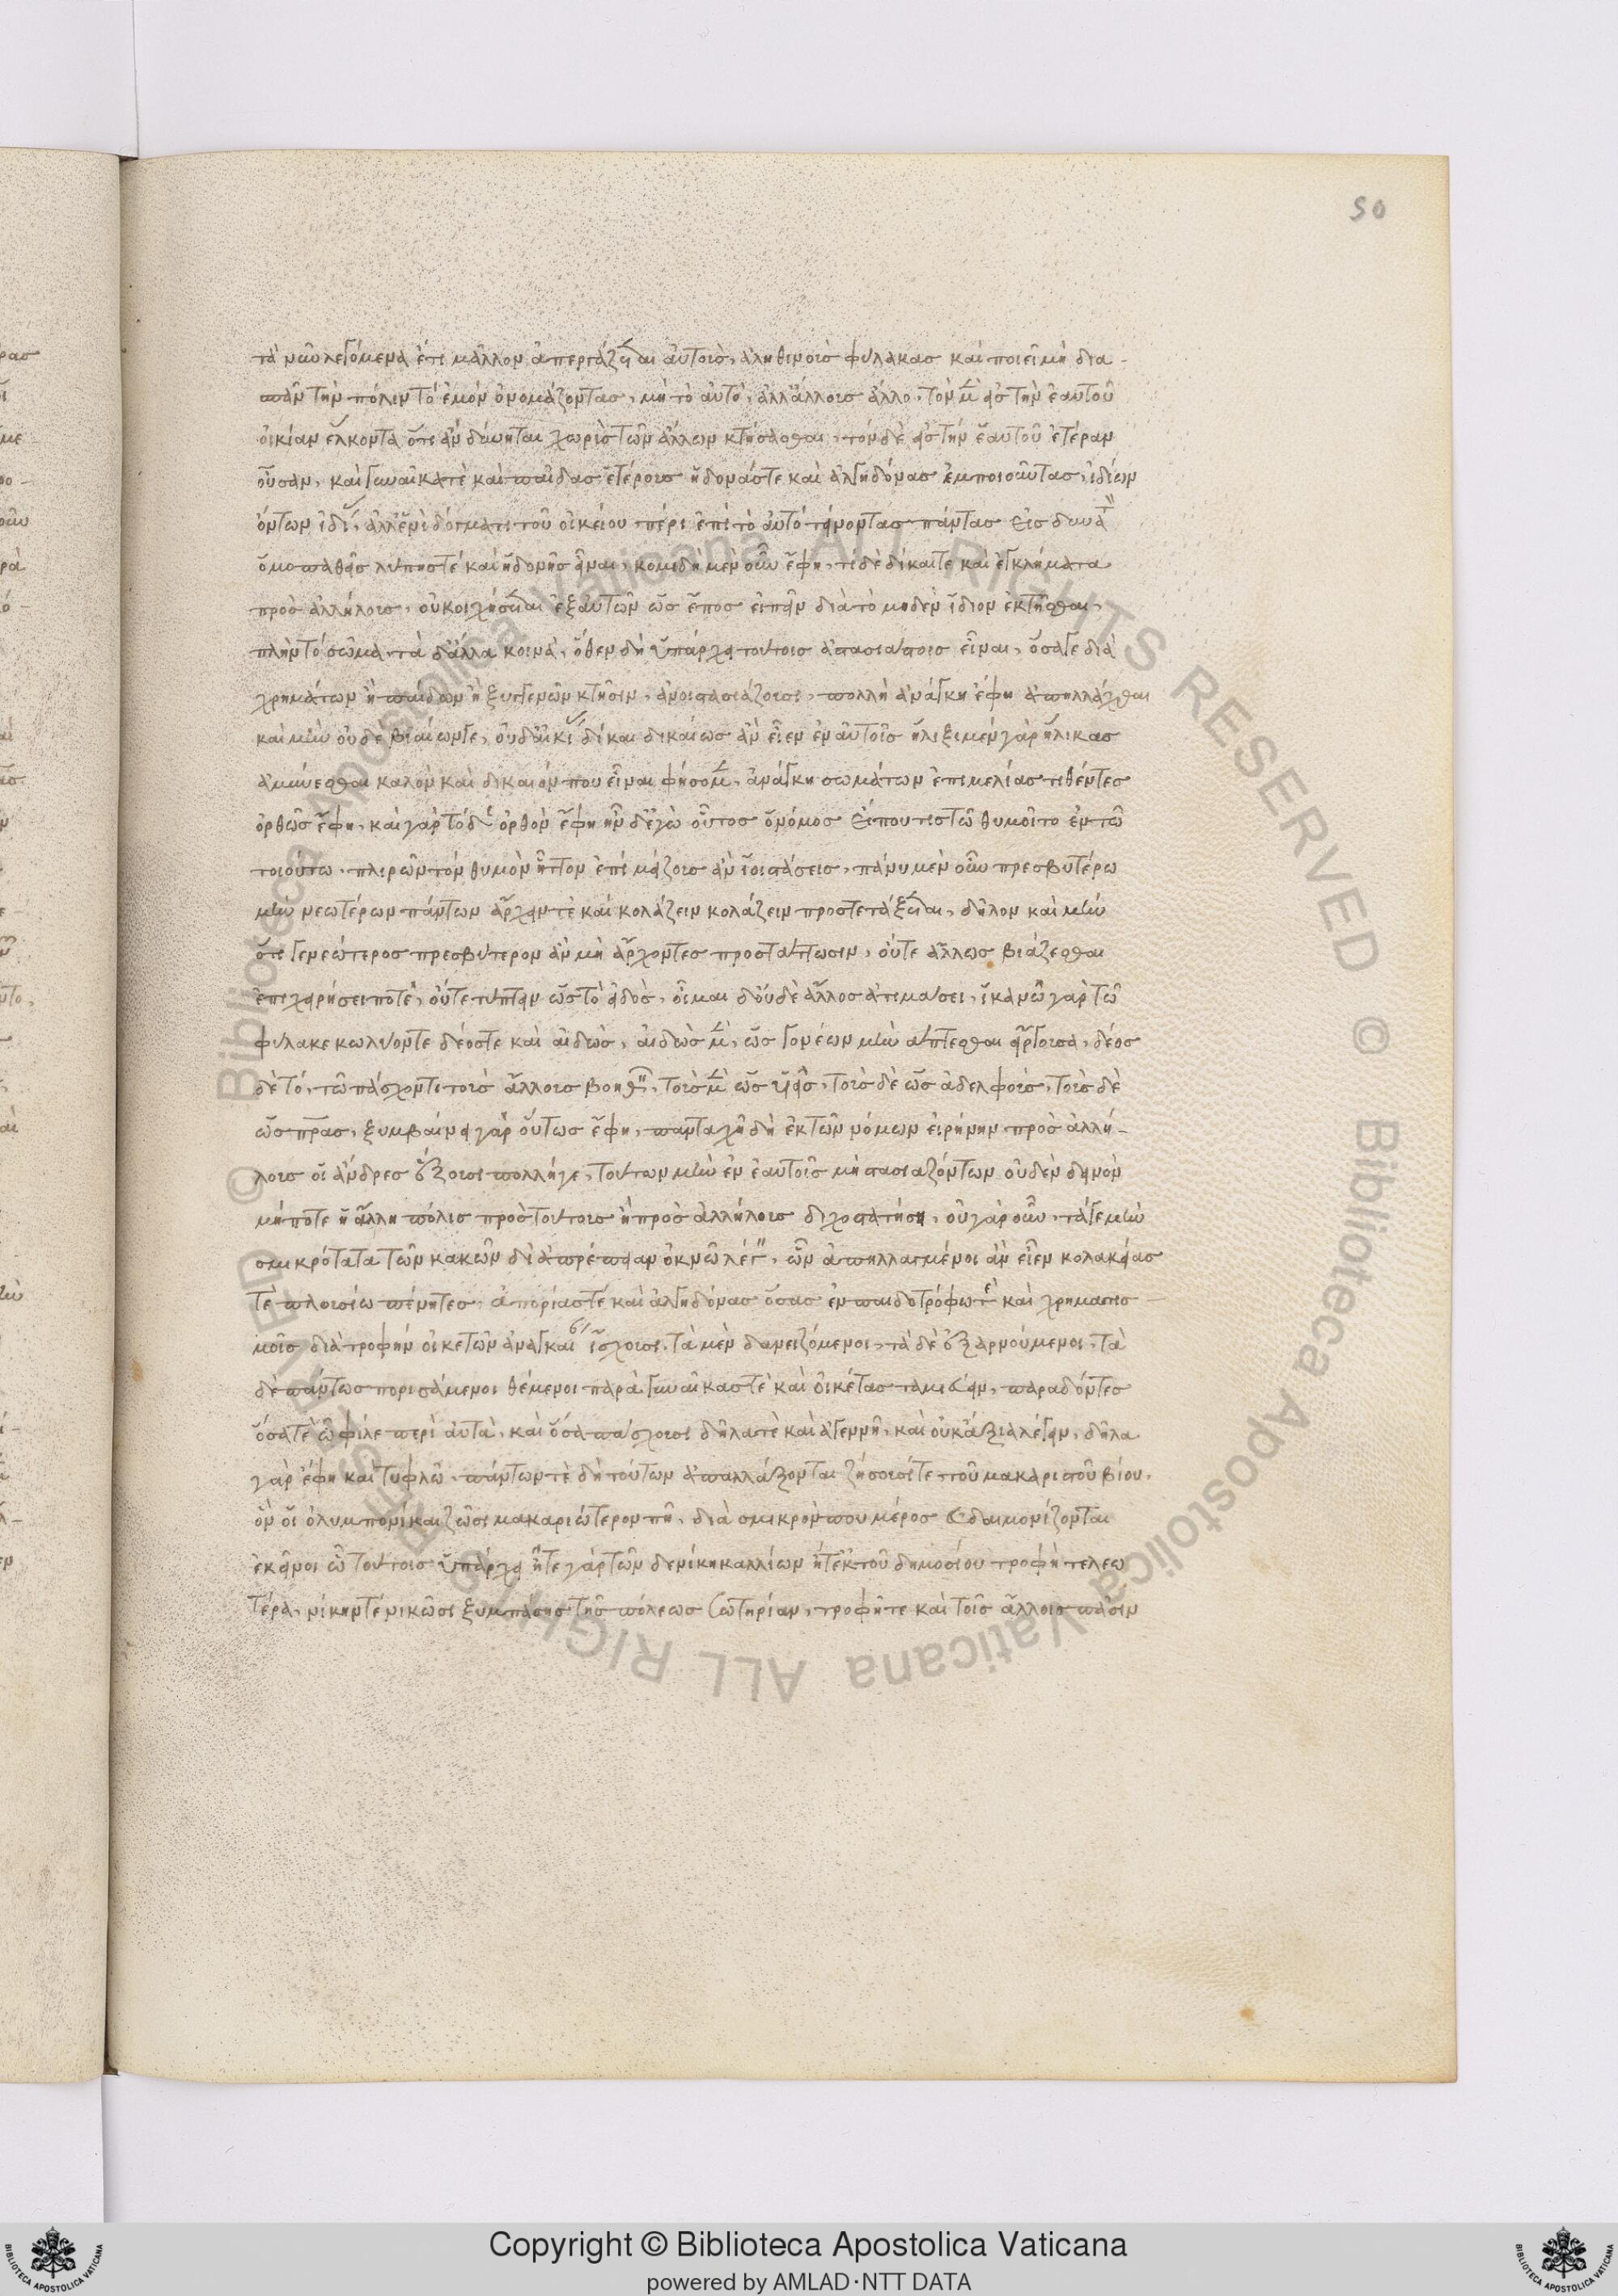 50
τὰ νῦν λεγόμενα ἔτι μᾶλλον ἀπεργάζεσθαι αὐτοὺς, ἀληθινοὺς φύλακας καὶ ποιεῖ μὴ δια-
σπᾶν τὴν πόλιν τὸ ἐμὸν ὀνομάζοντας, μὴ τὸ αὐτὸ, ἀλλ' ἄλλους ἄλλο, τὸν μὲν εἰς τὴν ἑαυτοῦ
οἰκίαν ἕλκοντα ὅτι ἂν δύνηται χωρὶς τῶν ἄλλων κτήσασθαι, τὸν δὲ εἰς τὴν ἑαυτοῦ ἑτέραν
οὖσαν, καὶ γυναῖκά τε καὶ παῖδας ἑτέρους ἡδονάς τε καὶ ἀλγηδόνας ἐμποιοῦντας, ἰδίων
ὄντων ἰδί, ἀλλ' ἑνὶ δόγματι τοῦ οἰκείου πέρι ἐπὶ τὸ αὐτὸ τείνοντας πάντας εἰς δυνατ
ὁμοπαθεῖς λύπης τέ καὶ ἡδονῆς εἶναι, κομιδῆ μὲν οὖν ἔφη, τί δὲ δίκαί τε καὶ ἐγκλήματα
πρὸς ἀλλήλους, οὐκ οἰχήσεται ἐξ αὐτῶν ὡς ἔπος εἰπεῖν διὰ τὸ μηδὲν ἴδιον ἐκτῆσθαι,
πλὴν τὸ σῶμα, τὰ δ' ἄλλα κοινὰ, ὅθεν δὴ ὑπάρχει τούτοις ἀστασιάστοις εἶναι, ὅσα γε διὰ
χρημάτων ἢ παίδων ἢ ξυγγενῶν κτῆσιν, ἄνοι στασιάζουσι, πολλὴ ἀνάγκη ἔφη ἀπηλλάχθαι
καὶ μὴν οὐδὲ βιαίων γε, οὐδ' αἰκί δίκαι δικαίως ἂν εἶεν ἐν αὐτοῖς ἥλιξι μὲν γὰρ ἥλικας
ἀμύνεσθαι καλὸν καὶ δίκαιόν που εἶναι φήσομ, ἀνάγκη σωμάτων ἐπιμελίας τιθέντες
ὀρθῶς ἔφη, καὶ γὰρ τόδε ὀρθὸν ἔφη ἦν δ' ἐγὼ οὗτος ὁ νόμος εἴ που τις τῶ θυμοῖτο ἐν τῶ
τοιούτω, πλιρῶν τὸν θυμὸν ἧττον ἐπὶ μείζους ἂν ἴοι στάσεις, πάνυ μὲν οὖν πρεσβυτέρω
μὴν νεωτέρων πάντων ἄρχειν τὲ καὶ κολάζειν κολάζειν προστετάξεται, δῆλον καὶ μὴν
ὅτι γε νεώτερος πρεσβύτερον ἂν μὴ ἄρχοντες προστάττωσιν, οὔτε ἄλλως βιάζεσθαι
ἐπιχειρήσει ποτὲ, οὔτε τύπτειν ὡς τὸ εἰδὸς, οἶμαι δ' οὐδὲ ἄλλος ἀτιμάσει, ἱκανὼ γὰρ τῶ
φύλακε κωλύοντε δέος τε καὶ αἰδὼς, αἰδὼς μ, ὡς γονέων μὴν ἅπτεσθαι εἴργουσα, δέος
δὲ τό, τῶ πάσχοντι τοὺς ἄλλους βοηθ, τοὺς μ ὡς υἱεῖς, τοὺς δὲ ὡς ἀδελφοὺς, τοὺς δὲ
ὡς πρας, ξυμβαίνει γὰρ οὕτως ἔφη, πανταχῆ δὴ ἐκ τῶν νόμων εἰρήνην πρὸς ἀλλή-
λους οἱ ἄνδρες ἄξουσι πολλήγε, τούτων μὴν ἐν ἑαυτοῖς μὴ στασιαζόντων οὐδὲν δεινὸν
μή ποτε ἡ ἄλλη πόλις πρὸς τούτους ἢ πρὸς ἀλλήλους διχοστατήση, οὐ γὰρ οὖν, τά γε μὴν
σμικρότατα τῶν κακῶν δι' ἀπρέπειαν ὀκνῶ λέγ, ὧν ἀπηλλαγμένοι ἂν εἶεν κολακείας
τὲ πλουσίω πένητες, ἀπορίας τέ καὶ ἀλγηδόνας ὅσας ἐν παιδοτρόφω τε καὶ χρηματισ
μοῖς διὰ τροφὴν οἰκετῶν ἀναγκαί ἴσχουσι, τὰ μὲν δανειζόμενοι, τὰ δὲ ἐξαρνούμενοι, τὰ
δὲ πάντως πορισάμενοι θέμενοι παρὰ γυναῖκας τὲ καὶ οἰκέτας ταμιεύειν, παραδόντες
ὅσα τὲ ὦ φίλε περὶ αὐτὰ, καὶ ὅσα πάσχουσι δῆλα τὲ καὶ ἀγεννῆ, καὶ οὐκ ἄξια λέγειν, δῆλα
γὰρ ἔφη καὶ τυφλῶ, πάντων τὲ δὴ τούτων ἀπαλλάξονται ζήσουσί τε τοῦ μακαριστοῦ βίου,
ὃν οἱ ὀλυμπονίκαι ζῶσι μακαριώτερον πῆ, διὰ σμικρὸν που μέρος εὐδαιμονίζονται
ἐκεῖνοι ὧ τούτοις ὑπάρχει ἥτε γὰρ τῶν δε νίκη καλλίων ἥ τ' ἐκ τοῦ δημοσίου τροφὴ τελεω
τέρα, νίκην τέ νικῶσι ξυμπάσης τῆς πόλεως σωτηρίαν, τροφῆ τε καὶ τοῖς ἄλλοις πᾶσιν
Copyright © Biblioteca Apostolica Vaticana
powered by AMLAD·NTT DATA